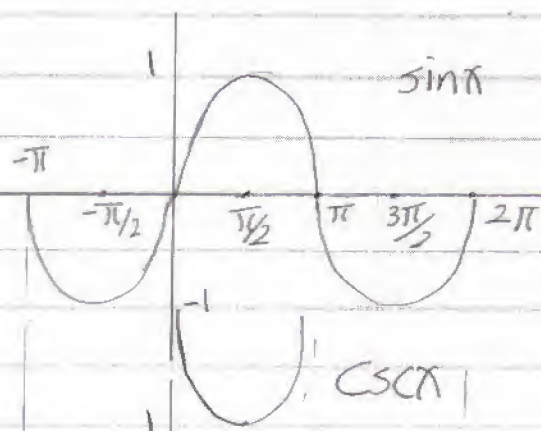 1
sinx
-π
-π/2
π/2
π
3π/2
2π
-1
cscx
1